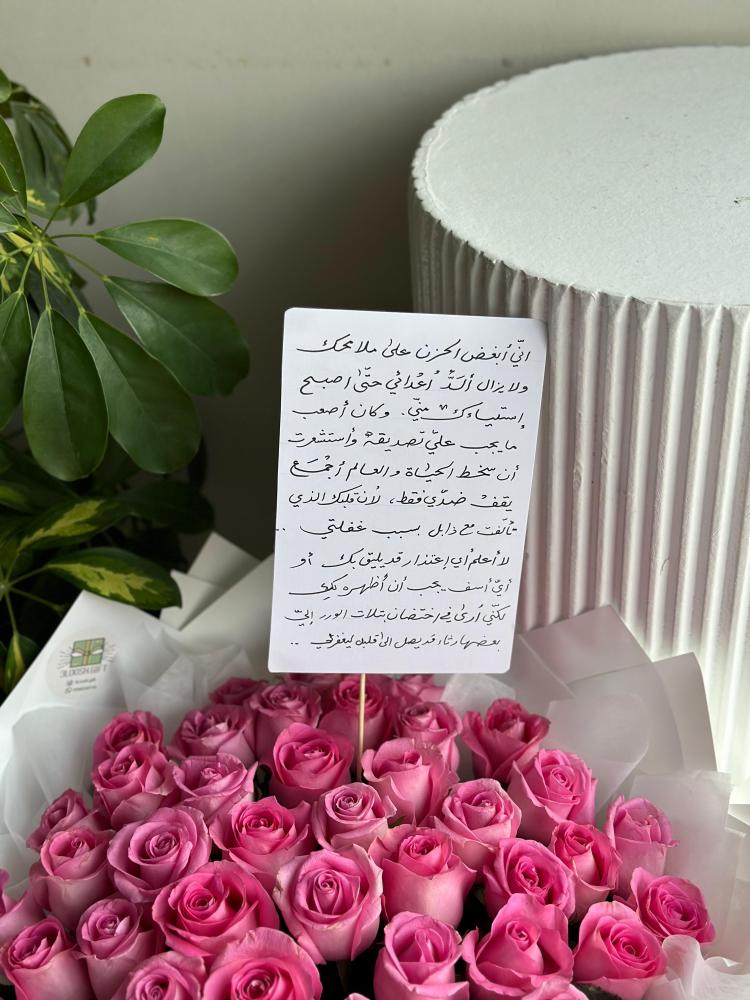 انّي أبغض الحزن على ملامحك
ولا يزال ألدَّ أعدائي حتّى اصبح
إستياءك منّي. وكان أصعب
ما يجب عليّ تصديقهُ وأستشعرت
أن سخط الحياة والعالم أجمَع
يقف ضدّي فقط، لأن قلبك الذي
تألّفت مع ذابل بسبب غفلتي ..
لا أعلم أي إعتذار قد يليق بك أو
أيّ أسف يجب أن أظهره لكِ
لكنّي أرى في احتضان بتلات الورد إلى
بعضها رثاء قد يصل الى قلبك ليغفر لي ..
3LOOSH.GIFT